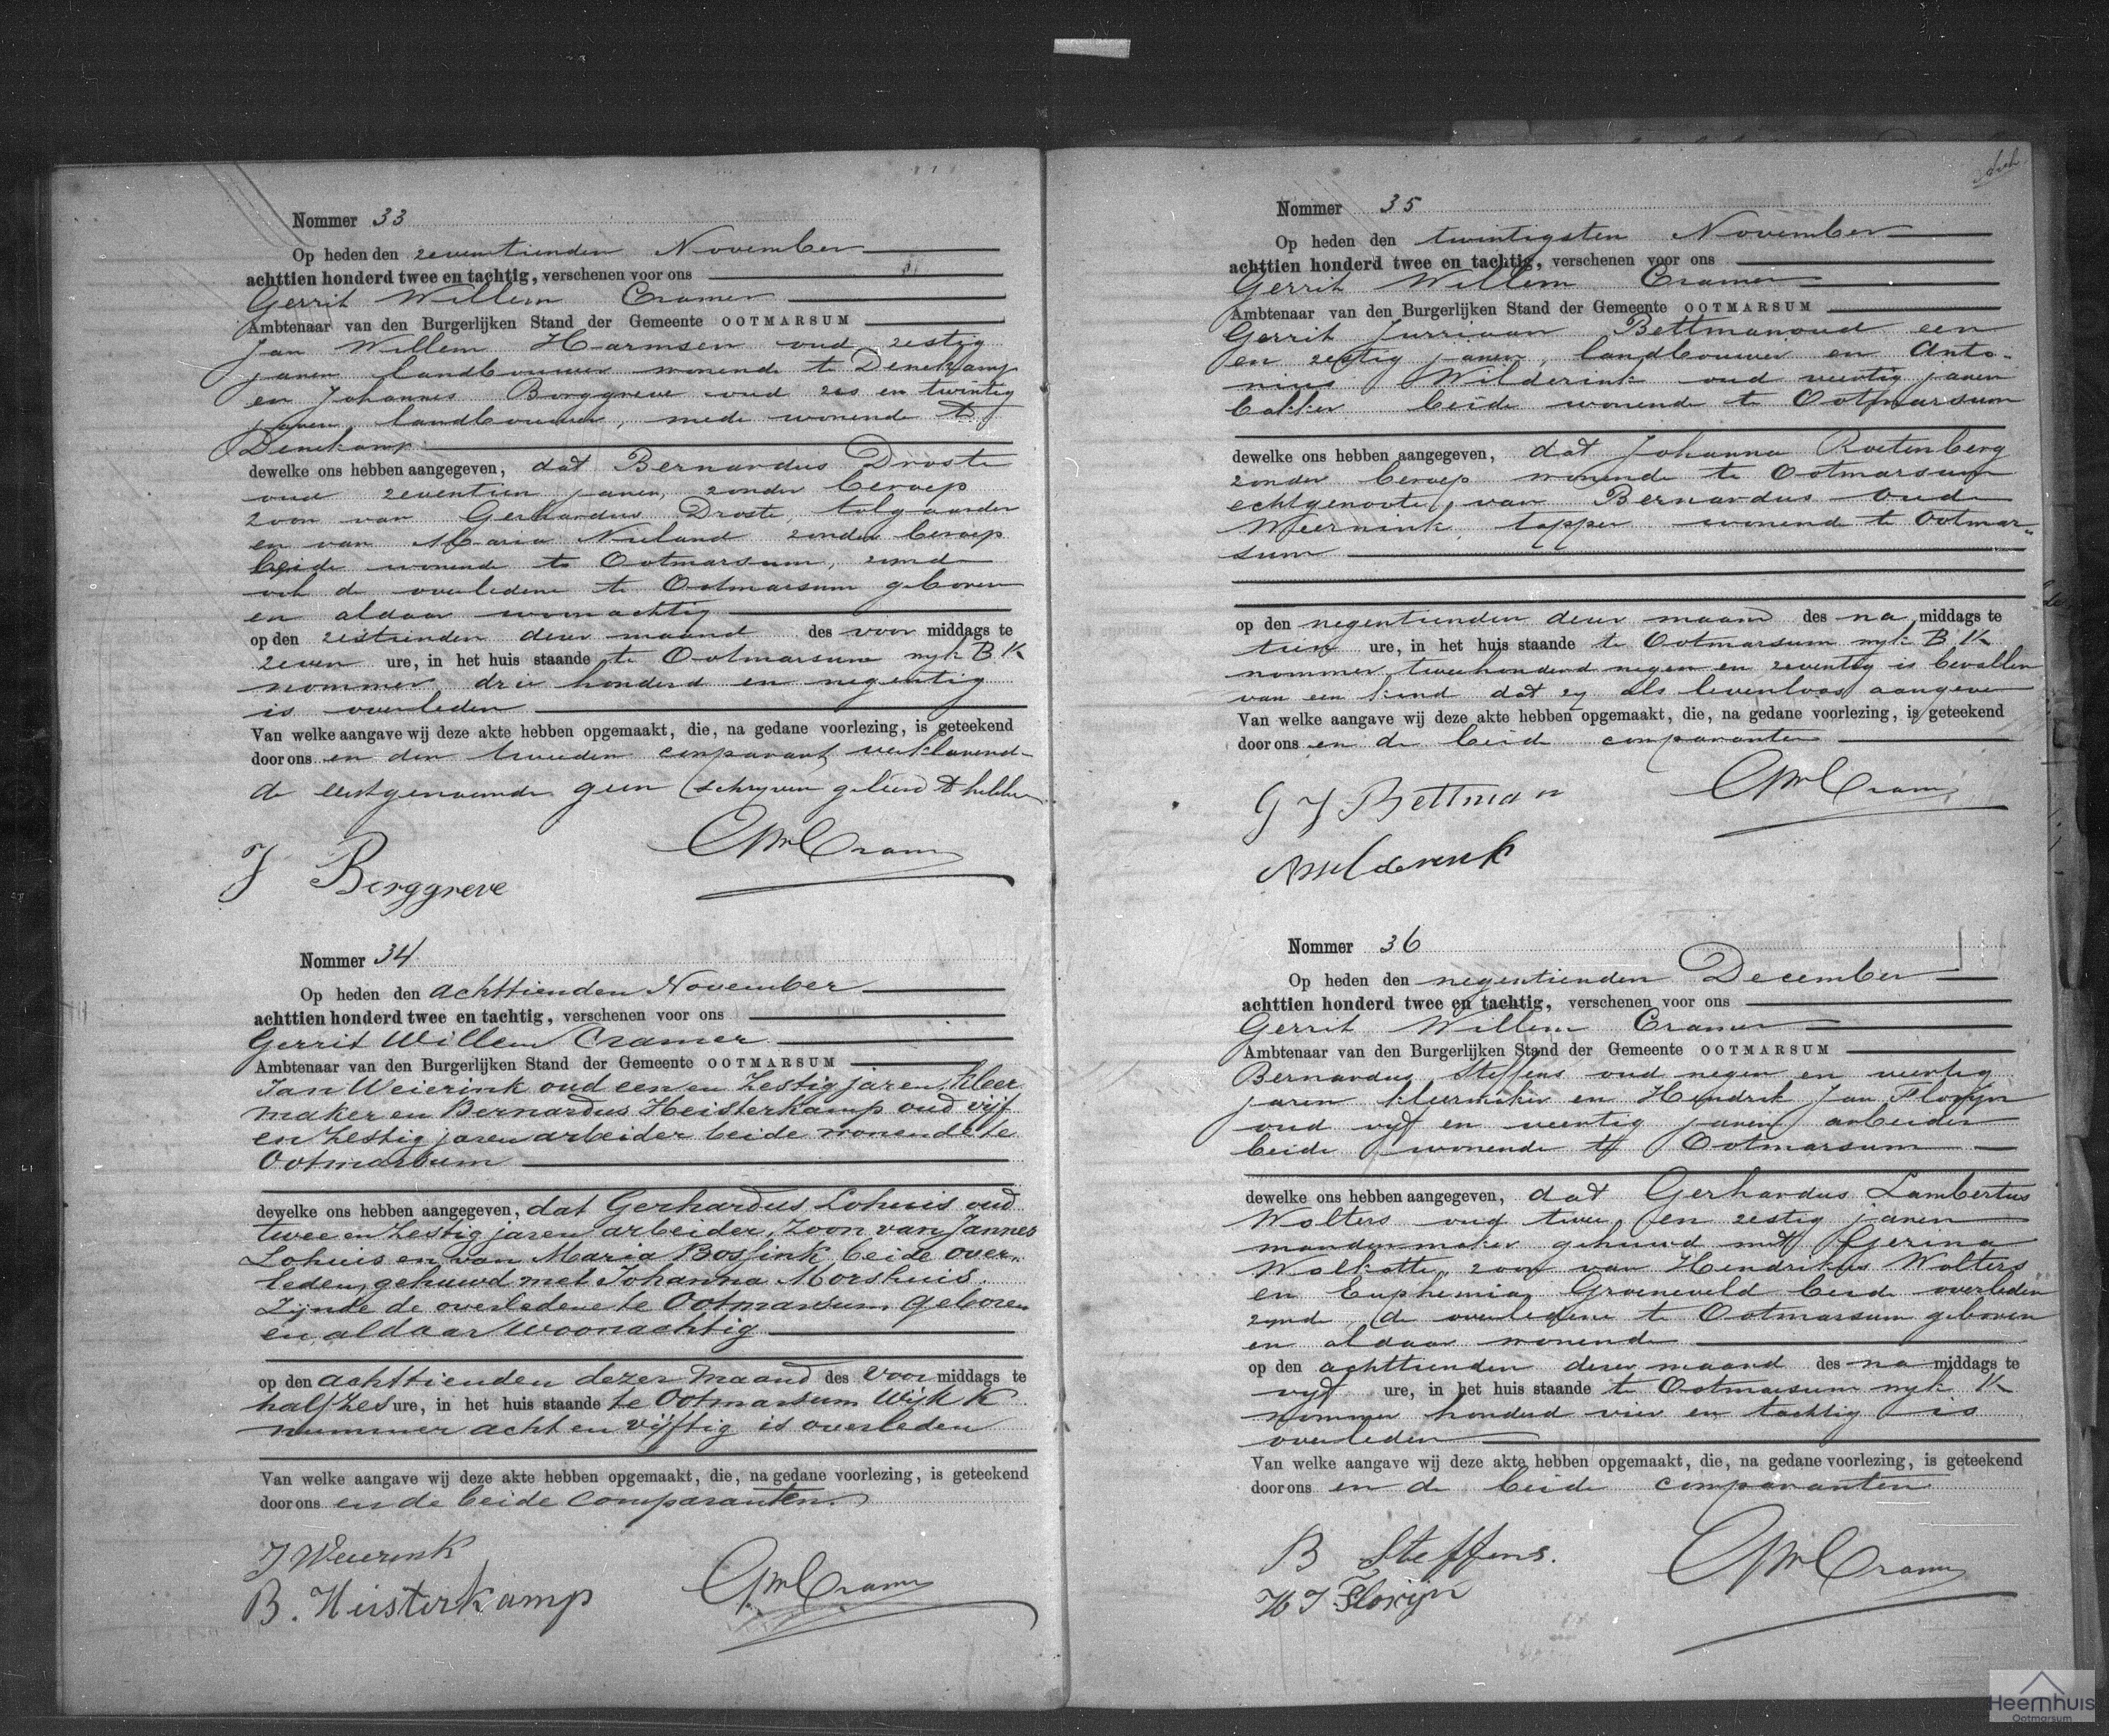 Nommer 33
Op heden den zeventienden November
achttien honderd twee en tachtig, verschenen voor ons
Gerrit Willem Cramer
Ambtenaar van den Burgerlijken Stand der Gemeente OOTMARSUM
Jan Willem Harmsen oud zestig
jaren landbouwer wonende te Denekamp
en Johannes Borggreve oud zes en twintig
jaren, landbouwer, mede wonende te
Denekamp
dewelke ons hebben aangegeven, dat Bernardus Droste
oud zeventien jaren, zonder beroep
zoon van Gerhardus Droste, tolgaarder
en van Maria Nieland zonder beroep
beide wonende te Ootmarsum, zijnde
ook de overledene te Ootmarsum geboren
en aldaar woonachtig
op den zestienden dezer maand des voor middags te
zeven ure, in het huis staande te Ootmarsum wijk B K
nommer drie honderd en negentig
is overleden
Van welke aangave wij deze akte hebben opgemaakt, die, na gedane voorlezing, is geteekend
door ons en den tweeden comparant verklarende
de eerstgenoemde geen schrijven geleerd te hebben
J Borggreve
GWCramer
Nommer 34
Op heden den achttienden November
achttien honderd twee en tachtig, verschenen voor ons
Gerrit Willem Cramer
Ambtenaar van den Burgerlijken Stand der Gemeente OOTMARSUM
Jan Weierink oud een en zestig jaren, kleer
maker en Bernardus Heisterkamp oud vijf
en zestig jaren arbeider beide wonende te
Ootmarsum
dewelke ons hebben aangegeven, dat Gerhardus Lohuis oud
twee en zestig jaren arbeider, zoon van Jannes
Lohuis en van Maria Bossink beide over-
leden, gehuwd met Johanna Morshuis.
Zijnde de overledene te Ootmarsum geboren
en aldaar woonachtig
op den achttienden dezer maand des voor middags te
half zes ure, in het huis staande te Ootmarsum Wijk K
nummer acht en vijftig is overleden
Van welke aangave wij deze akte hebben opgemaakt, die, na gedane voorlezing, is geteekend
door ons en de beide comparanten.
J Weierink
B. Heisterkamp
GWCramer
Nommer 35
Op heden den twintigsten November
achttien honderd twee en tachtig, verschenen voor ons
Gerrit Willem Cramer
Ambtenaar van den Burgerlijken Stand der Gemeente OOTMARSUM
Gerrit Jurriaan Bettman oud een
en zestig jaren, landbouwer en Anto-
nius Wilderink oud veertig jaren
bakker beide wonende te Ootmarsum
dewelke ons hebben aangegeven, dat Johanna Roetenberg
zonder beroep wonende te Ootmarsum
echtgenoote van Bernardus Oude
Meernink, tapper wonende te Ootmar-
sum
op den negentienden dezer maand des na middags te
tien ure, in het huis staande te Ootmarsum wijk B K
nommer tweehonderd negen en zeventig is bevallen
van een kind dat zij als levenloos aangeven
Van welke aangave wij deze akte hebben opgemaakt, die, na gedane voorlezing, is geteekend
door ons en de beide comparanten
G J Bettman
GWCramer
AWilderink
Nommer 36
Op heden den negentienden December
achttien honderd twee en tachtig, verschenen voor ons
Gerrit Willem Cramer
Ambtenaar van den Burgerlijken Stand der Gemeente OOTMARSUM
Bernardus Steffens oud negen en veertig
jaren kleermaker en Hendrik Jan Florijn
oud vijf en veertig jaren arbeider
beide wonende te Ootmarsum
dewelke ons hebben aangegeven, dat Gerhardus Lambertus
Wolters oud twee en zestig jaren
mandenmaker gehuwd met Gerina
Wolkotte, zoon van Hendrikus Wolters
en Euphemia Groeneveld beide overleden
zijnde de overledene te Ootmarsum geboren
en aldaar wonende
op den achttienden dezer maand des na middags te
vijf ure, in het huis staande te Ootmarsum wijk K
nommer honderd vier en tachtig is
overleden
Van welke aangave wij deze akte hebben opgemaakt, die, na gedane voorlezing, is geteekend
door ons en de beide comparanten
B Steffens.
H J Florijn
GWCramer
Heemhuis
Ootmarsum